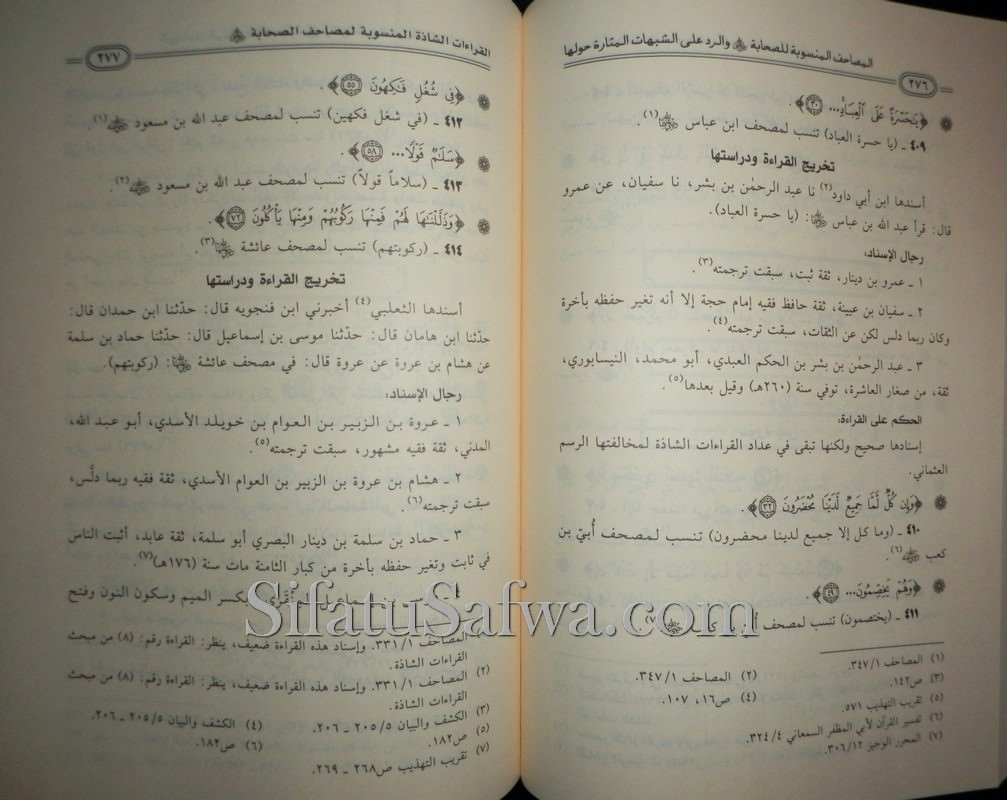 المصاحف المنسوبة للصحابة ﷺ والرد على الشبهات المثارة حولها
٢٧٦
﴿يَٰحَسْرَةً عَلَى ٱلْعِبَادِ... ٣٠﴾.
٤٠٩ ـ (يا حسرة العباد) تنسب لمصحف ابن عباس (١).
تخريج القراءة ودراستها
أسندها ابن أبي داود(٢) نا عبد الرحمٰن بن بشر، نا سفيان، عن عمرو
قال: قرأ عبد الله بن عباس: (يا حسرة العباد).
رجال الإسناد:
١ ـ عمرو بن دينار، ثقة ثبت، سبقت ترجمته(٣).
٢ ـ سفيان بن عيينة، ثقة حافظ فقيه إمام حجة إلا أنه تغير حفظه بأخرة
وكان ربما دلس لكن عن الثقات، سبقت ترجمته(٤).
٣ ـ عبد الرحمٰن بن بشر بن الحكم العبدي، أبو محمد، النيسابوري،
ثقة، من صغار العاشرة، توفي سنة (٢٦٠هـ) وقيل بعدها(٥).
الحكم على القراءة:
إسنادها صحيح ولكنها تبقى في عداد القراءات الشاذة لمخالفتها الرسم
العثماني.
﴿وَإِن كُلٌّ لَّمَّا جَمِيعٌ لَّدَيْنَا مُحْضَرُونَ ٣٢﴾.
٤١٠ ـ (وما كل إلا جميع لدينا محضرون) تنسب لمصحف أُبيّ بن
كعب (٦).
﴿وَهُمْ يَخِصِّمُونَ... ٤٩﴾.
٤١١ ـ (يختصمون) تنسب لمصحف أُبيّ بن كعب (٧)
(١) المصاحف ٣٤٧/١.
(٢) المصاحف ٣٤٧/١.
(٣) ص١٤٢.
(٤) ص١٦، ١٠٧.
(٥) تقريب التهذيب ٥٧١.
(٦) تفسير القرآن لأبي المظفر السمعاني ٣٢٤/٤.
(٧) المحرر الوجيز ٣٠٦/١٢.
القراءات الشاذة المنسوبة لمصاحف الصحابة
٢٧٧
﴿فِى شُغُلٍ فَٰكِهُونَ ٥٥﴾.
٤١٢ ـ (في شغل فكهين) تنسب لمصحف عبد الله بن مسعود (١).
﴿سَلَٰمٌ قَوْلًا... ٥٨﴾.
٤١٣ ـ (سلاماً قولاً) تنسب لمصحف عبد الله بن مسعود (٢).
﴿وَذَلَّلْنَٰهَا لَهُمْ فَمِنْهَا رَكُوبُهُمْ وَمِنْهَا يَأْكُلُونَ ٧٢﴾.
٤١٤ ـ (ركوبتهم) تنسب لمصحف عائشة (٣).
تخريج القراءة ودراستها
أسندها الثعلبي(٤) أخبرني ابن فنجويه قال: حدّثنا ابن حمدان قال:
حدّثنا ابن هامان قال: حدّثنا موسى بن إسماعيل قال: حدّثنا حماد بن سلمة
عن هشام بن عروة عن عروة قال: في مصحف عائشة: (ركوبتهم).
رجال الإسناد:
١ ـ عروة بن الزبير بن العوام بن خويلد الأسدي، أبو عبد الله،
المدني، ثقة فقيه مشهور، سبقت ترجمته(٥).
٢ ـ هشام بن عروة بن الزبير بن العوام الأسدي، ثقة فقيه ربما دلَّس،
سبقت ترجمته(٦).
٣ ـ حماد بن سلمة بن دينار البصري أبو سلمة، ثقة عابد، أثبت الناس
في ثابت وتغير حفظه بأخرة من كبار الثامنة مات سنة (١٧٦هـ)(٧).
٤ ـ بن إسماعيل المنقري، بكسر الميم وسكون النون وفتح
(١) المصاحف ٣٣١/١. وإسناد هذه القراءة ضعيف، ينظر: القراءة رقم: (٨) من مبحث
القراءات الشاذة.
(٢) المصاحف ٣٣١/١. وإسناد هذه القراءة ضعيف، ينظر: القراءة رقم: (٨) من مبحث
القراءات الشاذة.
(٣) الكشف والبيان ٢٠٥/٥ ـ ٢٠٦.
(٤) الكشف والبيان ٢٠٥/٥ ـ ٢٠٦.
(٥) ص١٨٢.
(٦) ص١٨٢.
(٧) تقريب التهذيب ص٢٦٨ ـ ٢٦٩.
SifatuSafwa.com